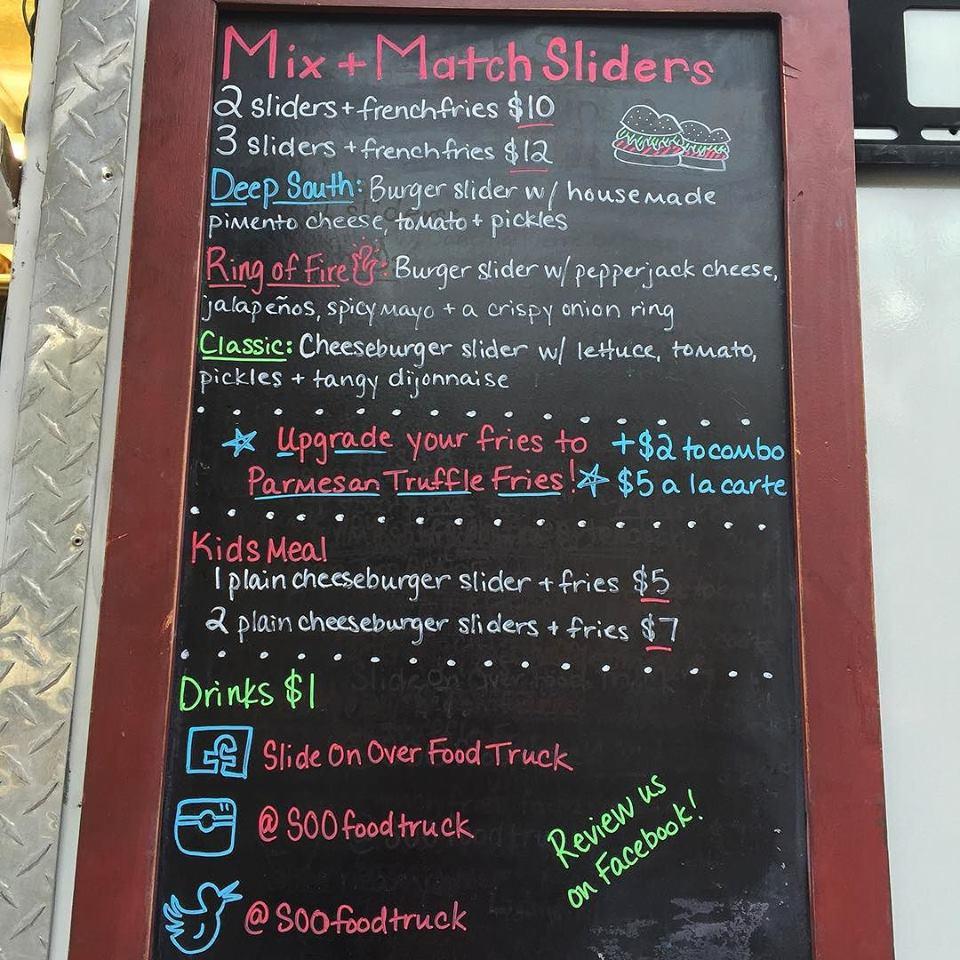 Mix + Match Sliders
2 sliders + french fries $10
3 sliders + french fries $12
Deep South: Burger slider w/ housemade
pimento cheese, tomato + pickles
Ring of Fire: Burger slider w/ pepperjack cheese,
jalapeños, spicy mayo + a crispy onion ring
Classic: Cheeseburger slider w/ lettuce, tomato,
pickles + tangy dijonnaise
Upgrade your fries to +$2 to combo
Parmesan Truffle Fries! $5 a la carte
Kids Meal
1 plain cheeseburger slider + fries $5
2 plain cheeseburger sliders + fries $7
Drinks $1
f Slide On Over Food Truck
@SOOfoodtruck
@SOOfoodtruck
Review us
on Facebook!